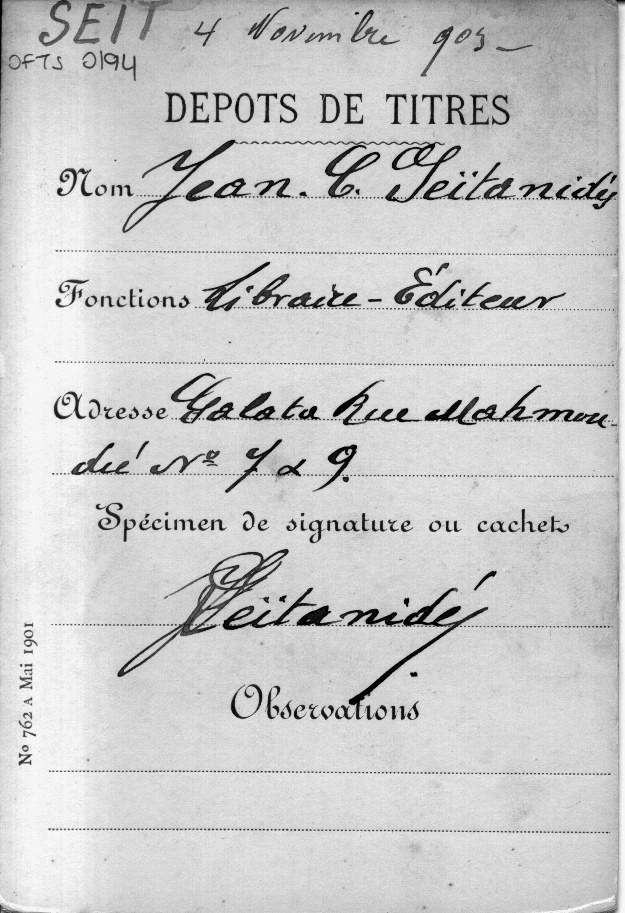 SEIT 4 Novembre 903
OFTS 0194
DEPOTS DE TITRES
Nom Jean. C. Seïtanidés
Fonctions Libraire-Éditeur
Adresse Galata Rue Mahmou-
dié Nº 7 & 9.
Spécimen de signature ou cachet
Seïtanidés
Observations
Nº 762 A Mai 1901